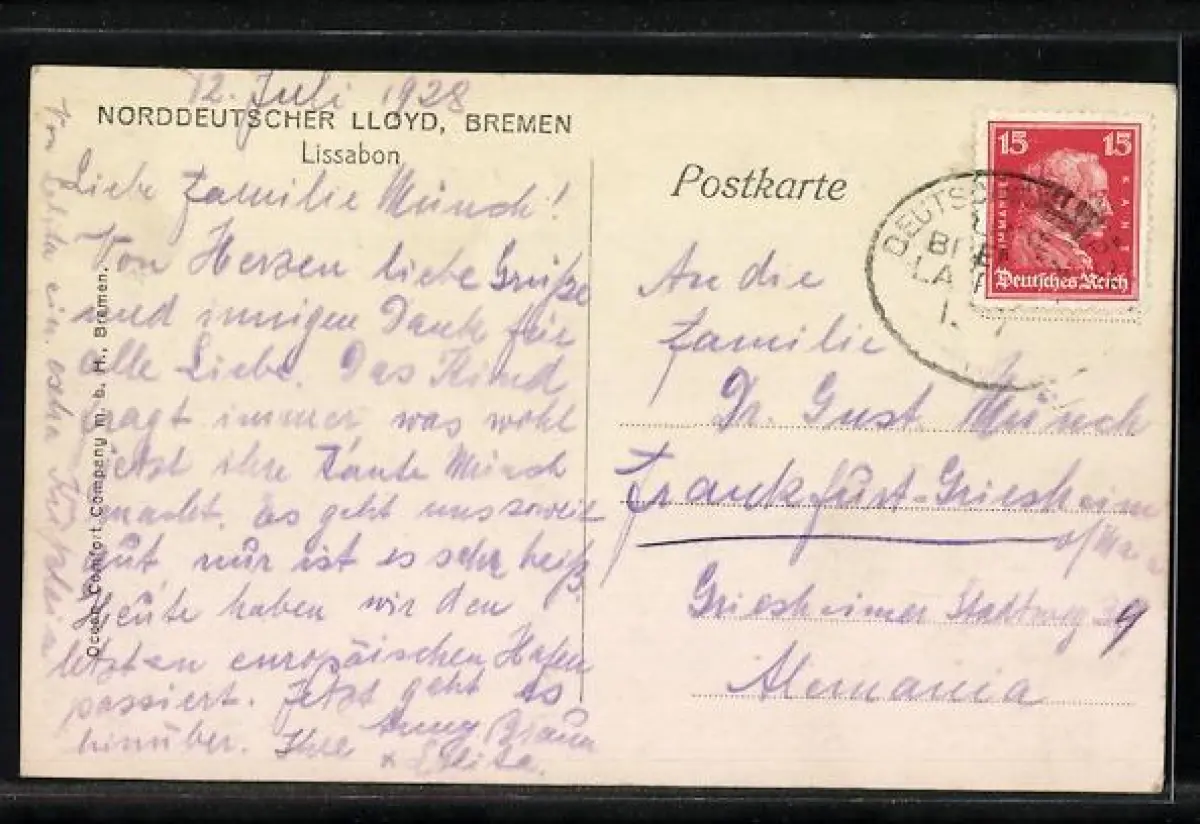 12. Juli 1928
NORDDEUTSCHER LLOYD, BREMEN
Lissabon
Liebe Familie Münch!
Von Herzen liebe Grüße
und innigen Dank für
alle Liebe. Das Kind
sagt immer, was wohl
jetzt ihre Tante Münch
macht. Es geht uns soweit
gut nur ist es sehr heiß.
Heute haben wir den
letzten europäischen Hafen
passiert. Jetzt geht es
hinüber. Ihre Anny Braun
x Elita.
Von Elita ein
Ocean Comfort Company m. b. H., Bremen.
Postkarte
15 15
IMMANUEL KANT
Deutsches Reich
DEUTSCH
An die
Familie
Dr. Gust. Münch
Frankfurt-Griesheim
a/Main
Griesheimer Stadtweg 39
Alemania